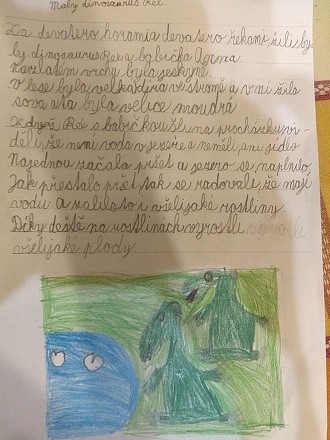 Malý dinosaurus Rex
Za devatero horama devatero řekami, žili by
ly dinosaurus Rex a babička Anma
Na zlatém vrchy byla jeskyně.
V lese byla velka díra ve stromě a v ní žila
sova, a ta byla velice moudrá
Když Rex s babičkou šli na procházku vi-
děli, že není voda v jezeře a neměli ani jídlo
Najednou začalo pršet a jezero se naplnilo
Jak přestalo pršet tak se radovali, že mají
vodu a zalilo to i všelijaké rostliny
Díky deště na rostlinách vyrostli
všelijaké plody